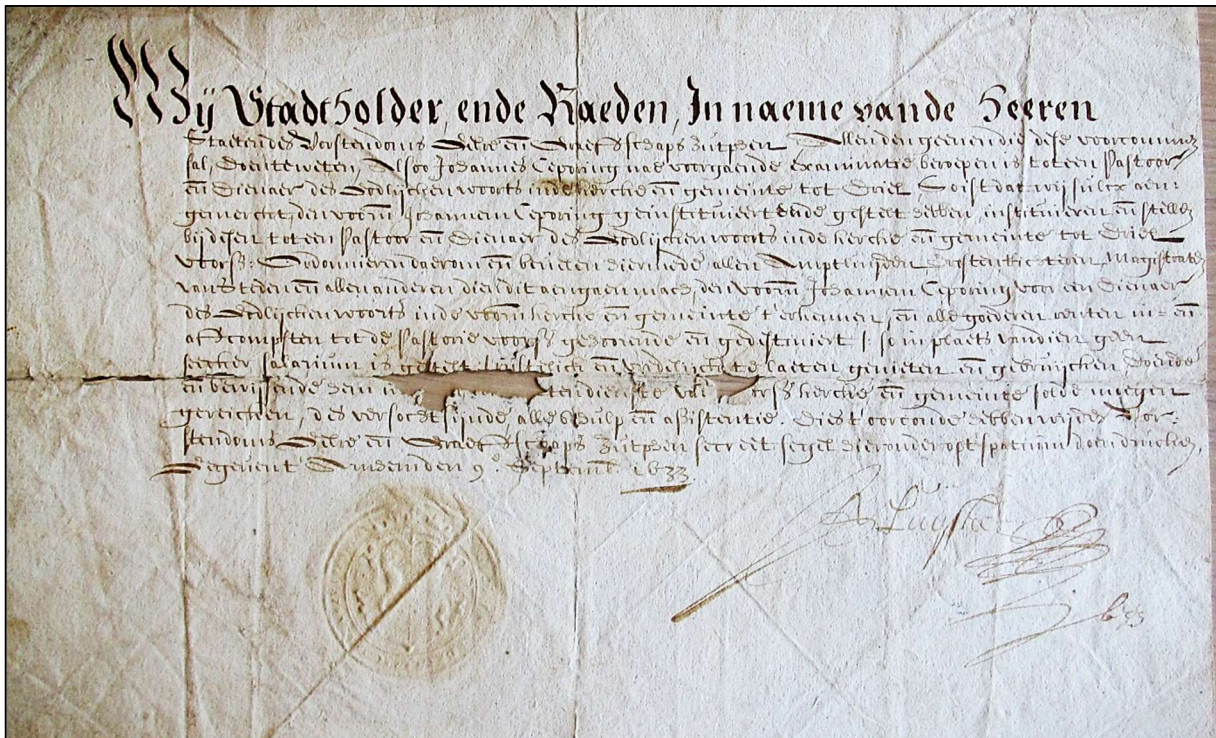 Wij Stadtholder, ende Raeden, In naeme vande Heeren
Staeten des Vorstendoms Gelre en̄ Graefschaps Zutphen Allen den geenen die dese voorcommen
sal, Doen te weten, Alsoo Johannes Ceporinus nae voorgaende examinatie beroepen is tot een Pastoor
en̄ Dienaer des Godlijcken woorts inde kercke en̄ gemeinte tot Driel, Soo ist dat wij sulcx aen:
gemerckt, den voorn̄ Johannem Ceporinū geinstitueert ende gestelt hebben, institueren en̄ stellen
bij desen tot een Pastoor en̄ Dienaer des Godlijcken woorts inde kercke en̄ gemeinte tot Driel
voorss: Ordonnieren daerom en̄ bevelen hiermede, allen Amptluyden Richteren Magistraten
van Steden en̄ allen anderen dien dit aengaen mach, den voorn̄ Johannem Ceporinū voor een Dienaer
des Godlijcken woorts inde voorn̄ kercke en̄ gemeinte t'erkennen, en̄ alle goederen renten in: en̄
afcompsten tot de Pastorie voorss gehoorende en̄ gedestineert, so in plaets van dien geen
seecker salarium is gestelt en̄ te laeten genieten en̄ gebruijcken Doende
en̄ bewijsende hem ten dienste van voorss kercke en̄ gemeinte solde mogen
gereichen, des versocht sijnde, alle behulp en̄ assistentie. Dies t'oorconde hebben wij des Vor:
stendoms Gelre en̄ Graefschaps Zutphen secreet segel hieronder opt spatium doen drucken,
Gegeven t'Arnhem den 9.ᵉ Septemb. 1633